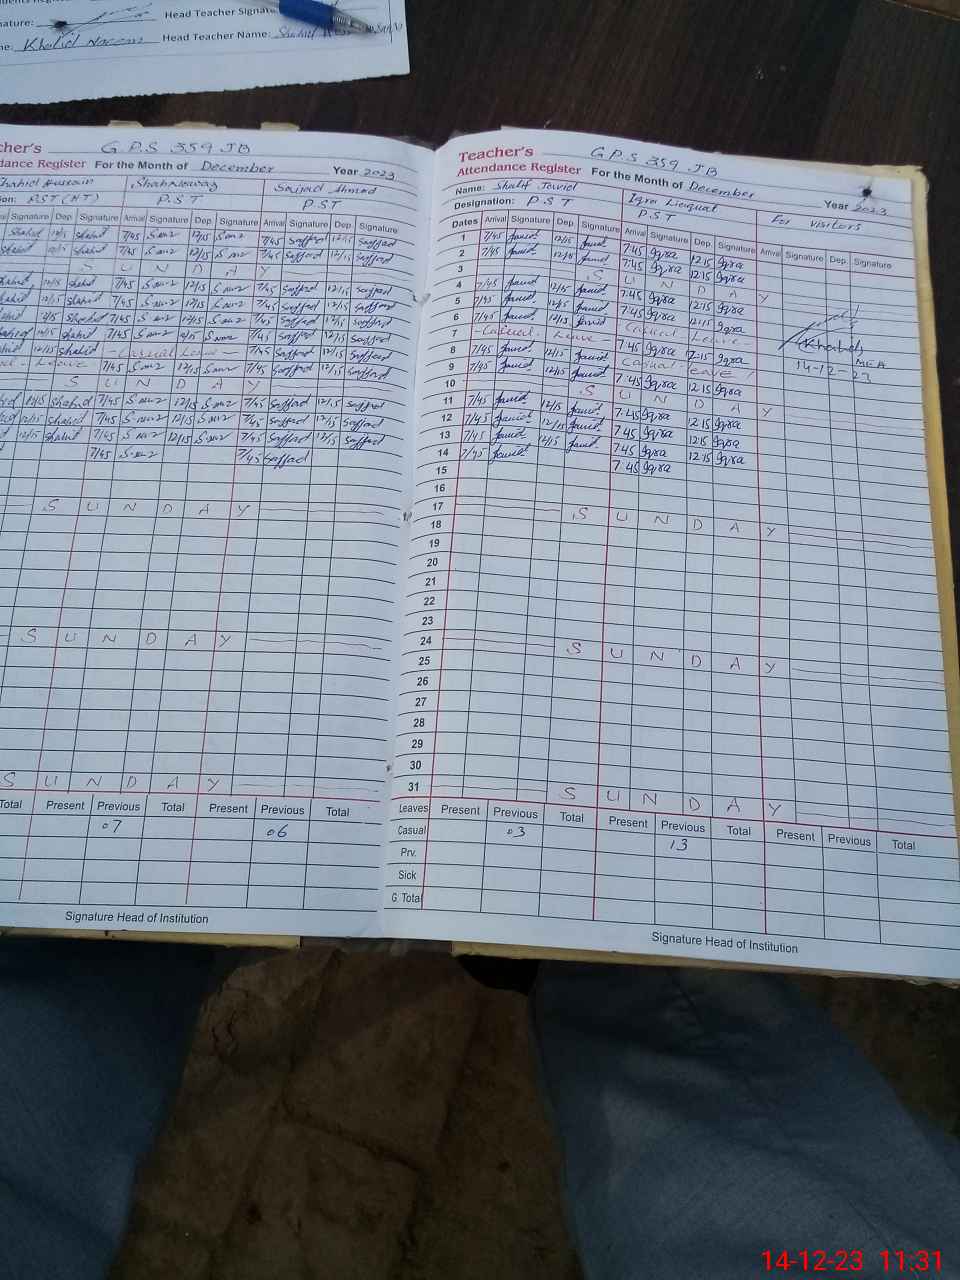 Head Teacher Signature
nature:
Khalid Naeem Head Teacher Name: Shahid
cher's G.P.S 359 JB
dance Register For the Month of December Year 2023
Shahid Hussain Shah Nawaz Sajjad Ahmad
ion: PST (HT) P.S.T P.S.T
Signature Dep. Signature Arrival Signature Dep. Signature Arrival Signature Dep. Signature
Shahid 12/15 Shahid 7/45 12/15 7/45 Sajjad 12/15 Sajjad
Shahid 12/15 Shahid 7/45 12/15 7/45 Sajjad 12/15 Sajjad
S U N D A Y
Shahid 12/15 Shahid 7/45 12/15 7/45 Sajjad 12/15 Sajjad
12/15 Shahid 7/45 12/15 7/45 Sajjad 12/15 Sajjad
12/15 Shahid 7/45 12/15 7/45 Sajjad 12/15 Sajjad
12/15 Shahid 7/45 12/15 7/45 Sajjad 12/15 Sajjad
12/15 Shahid - Casual Leave - 7/45 Sajjad 12/15 Sajjad
- Leave - 7/45 12/15 7/45 Sajjad 12/15 Sajjad
S U N D A Y
12/15 Shahid 7/45 12/15 7/45 Sajjad 12/15 Sajjad
12/15 Shahid 7/45 12/15 7/45 Sajjad 12/15 Sajjad
12/15 Shahid 7/45 12/15 7/45 Sajjad 12/15 Sajjad
7/45 7/45 Sajjad
S U N D A Y
S U N D A Y
S U N D A Y
Total Present Previous Total Present Previous Total
07 06
Signature Head of Institution
Teacher's G.P.S 359 JB
Attendance Register For the Month of December Year 2023
Name: Javied Iqra Liaquat For visitors
Designation: P.S.T P.S.T
Dates Arrival Signature Dep. Signature Arrival Signature Dep. Signature Arrival Signature Dep. Signature
1 7/45 Javied 12/15 Javied 7:45 Iqra 12:15 Iqra
2 7/45 Javied 12/15 Javied 7:45 Iqra 12:15 Iqra
3 S U N D A Y
4 7/45 Javied 12/15 Javied 7:45 Iqra 12:15 Iqra
5 7/45 Javied 12/15 Javied 7:45 Iqra 12:15 Iqra
6 7/45 Javied 12/15 Javied - Casual Leave -
7 - Casual Leave - 7:45 Iqra 12:15 Iqra
8 7/45 Javied 12/15 Javied Casual Leave
9 7/45 Javied 12/15 Javied 7:45 Iqra 12:15 Iqra
10 S U N D A Y
11 7/45 Javied 12/15 Javied 7:45 Iqra 12:15 Iqra
12 7/45 Javied 12/15 Javied 7:45 Iqra 12:15 Iqra
13 7/45 Javied 12/15 Javied 7:45 Iqra 12:15 Iqra
14 7/45 Javied 7:45 Iqra
Khalid
MEA
14-12-23
15
16
17 S U N D A Y
18
19
20
21
22
23
24 S U N D A Y
25
26
27
28
29
30
31 S U N D A Y
Leaves Present Previous Total Present Previous Total Present Previous Total
Casual 03 13
Prv.
Sick
G. Total
Signature Head of Institution
14-12-23 11:31